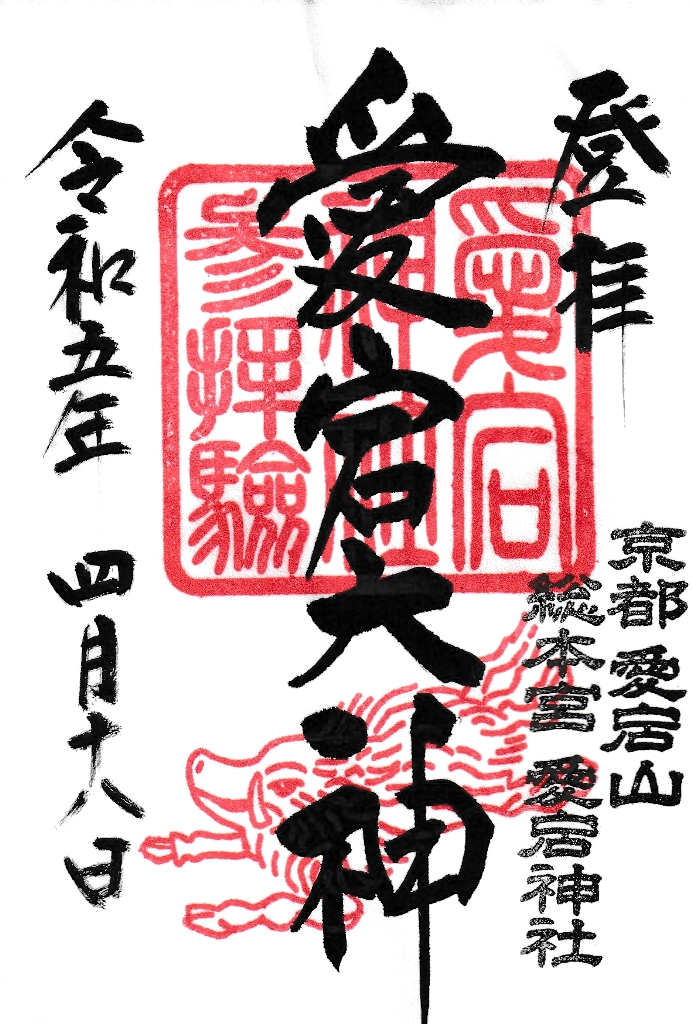 登拝
京都 愛宕山
総本宮 愛宕神社
愛宕大神
愛宕
神社
參拝驗
令和五年 四月十八日